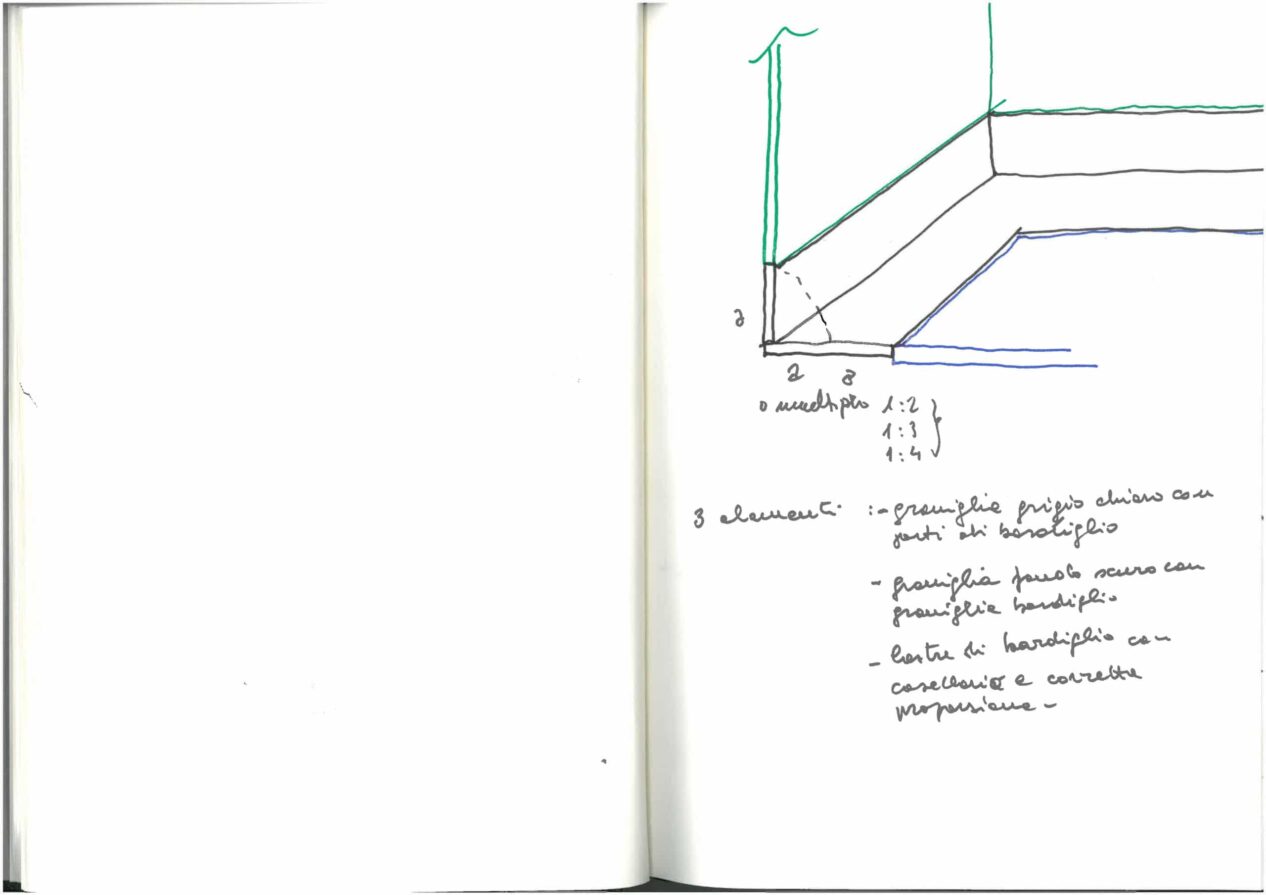 a
a a
o multiplo 1:2
1:3
1:4
3 elementi :- graniglia grigio chiaro con
parti di bardiglio
- graniglia fondo scuro con
graniglia bardiglio
- lastre di bardiglio con
e corretta
proporzione -